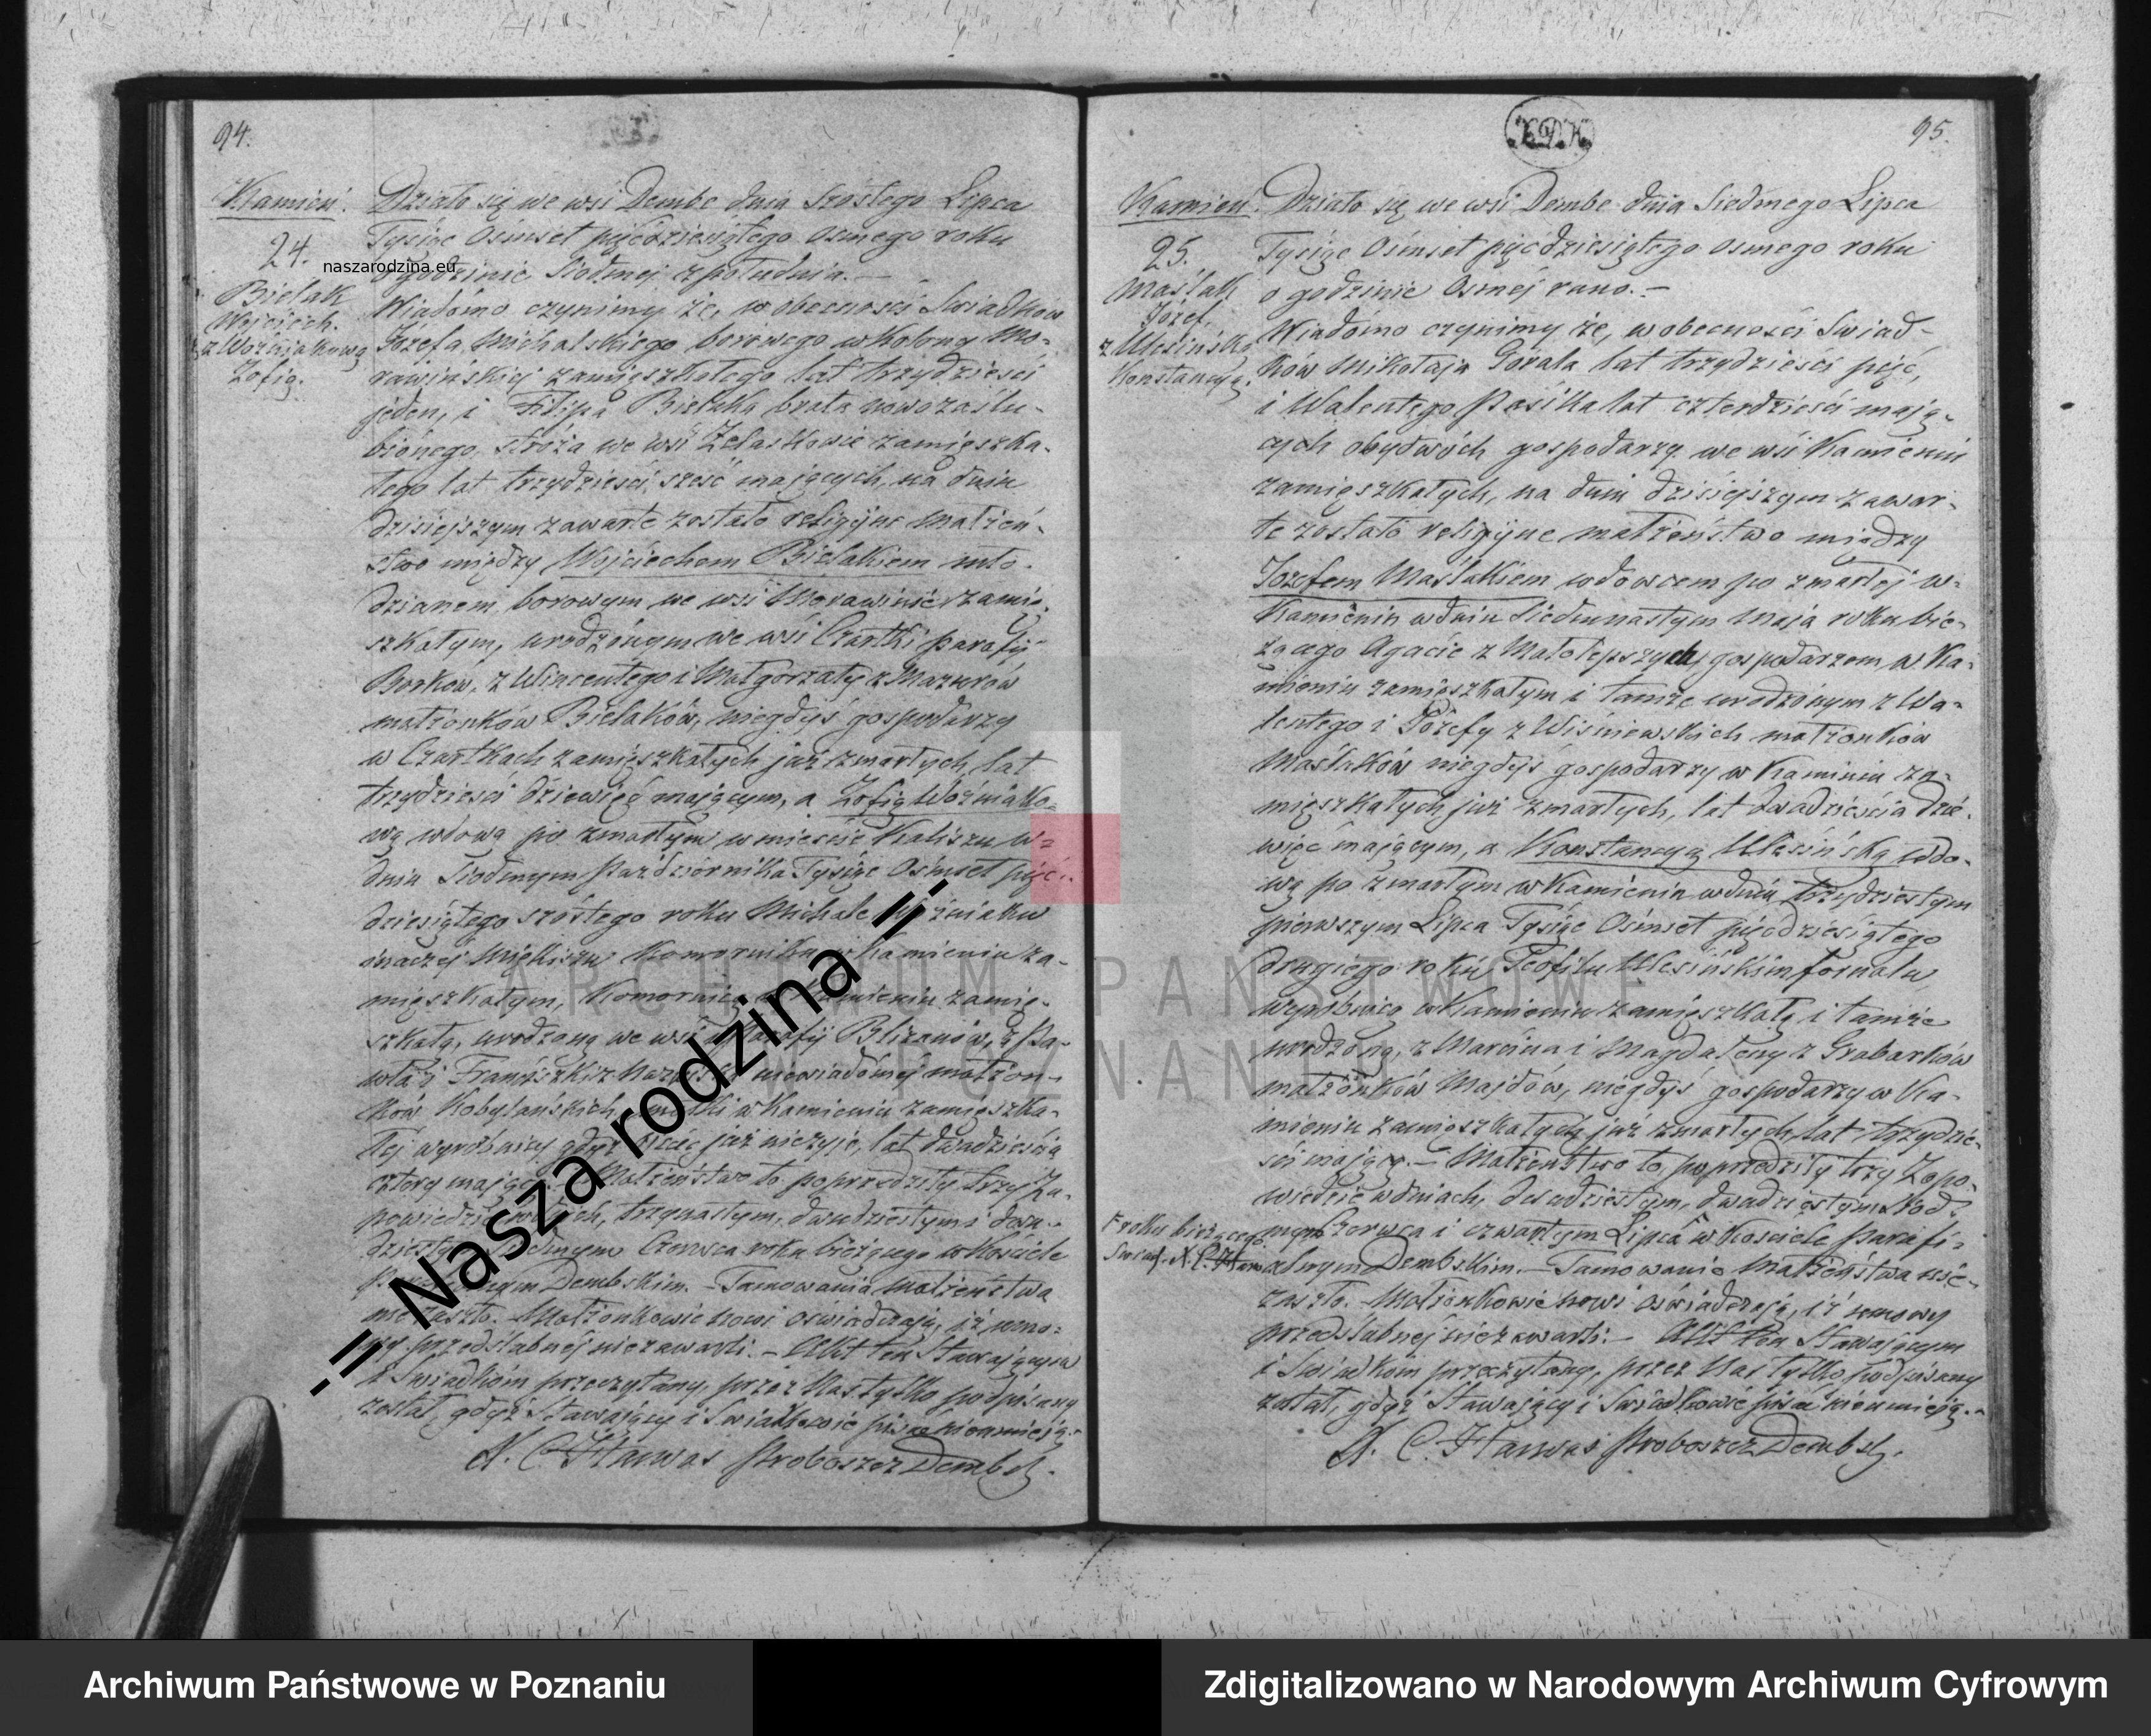 94.
Kamień.
24.
naszarodzina.eu
Bielak
Wojciech.
z Woźniakową
Zofią.
Działo się we wsi Dembe dnia szóstego Lipca
Tysiąc Ośmset pięćdziesiątego osmego roku
o godzinie Siodmej z południa. —
Wiadomo czynimy że, w obecności Swiadków
Józefa Michalskiego borowego w Kolony Mo-
rawińskiej zamięszkałego lat trzydzieści
jeden, i Filipa Bielaka brata nowozaślu-
bionego, stróża we wsi Żelaskowie zamięszka-
łego lat trzydzieści sześć mających, na dniu
dzisiejszym zawarte zostało religijne Małżeń-
stwo między Wojciechem Bielakiem mło-
dzianem borowym we wsi Morawinie zamię-
szkałym, urodzonym we wsi Czartki parafij
Borków, z Wincentego i Małgorzaty z Mazurów
małżonków Bielaków, niegdyś gospodarzy
w Czartkach zamięszkałych już zmarłych, lat
trzydzieści dziewięć mającym, a Zofią Woźniako-
wą wdową po zmarłym w mieście Kaliszu w=
dniu Siodmym Października Tysiąc Ośmset pięć-
dziesiątego szóstego roku Michale
inaczej Komorniku Kamieniu za-
mięszkałym, Komornicą w Kamieniu zamię-
szkałą, urodzoną we wsi parafij Blizanów, z Pa-
wła i Franciszki z niewiadomej małżon-
ków Kobylańskich, matki w Kamieniu zamięszka-
łej wyrobnicy gdyż ojciec już nieżyje, lat dwadzieścia
cztery mającą. Małżeństwo to poprzedziły trzy Za-
powiedzie w dniach, trzynastym, dwudziestym i dwu-
dziestym siodmym Czerwca roku bieżącego w Kościele
Parafialnym Dembskim. — Tamowania Małżeństwa
nie zaszło. Małżonkowie nowi oświadczają, iż umo-
wy przedślubnej niezawarli. — Akt ten Stawającym
i Swiadkom przeczytany, przez Nas tylko podpisany
został, gdyż Stawający i Swiadkowie pisać nieumieją.
X. C. Hanwas Proboszcz Dembsk.
95.
Kamień.
25.
Maślak
Józef
z Ulesińską
Konstancyą.
Działo się we wsi Dembe dnia Siedmego Lipca
Tysiąc Ośmset pięćdziesiątego osmego roku
o godzinie Osmej rano. —
Wiadomo czynimy że, w obecności Swiad-
ków Mikołaja Gorala lat trzydzieści pięć,
i Walentego Pasika lat czterdzieści mają-
cych obydwóch gospodarzy we wsi Kamieniu
zamięszkałych, na dniu dzisiejszym zawar-
te zostało religijne małżeństwo między
Józefem Maślakiem wdowcem po zmarłej w=
Kamieniu w dniu Siedmnastym Maja roku bie-
żącego Agacie z Małolepszych, gospodarzem w Ka-
mieniu zamięszkałym i tamże urodzonym z Wa-
lentego i Józefy z Wiśniewskich małżonków
Maślaków niegdyś gospodarzy w Kamieniu za-
mięszkałych już zmarłych, lat dwadzieścia dzie-
więć mającym, a Konstancyą Ulesińską wdo-
wą po zmarłym w Kamieniu w dniu trzydziestym
pierwszym Lipca Tysiąc Ośmset pięćdziesiątego
drugiego roku Teofilu Ulesińskim fornalu,
wyrobnicą w Kamieniu zamięszkałą i tamże
urodzoną, z Marcina i Magdaleny z Grabarków
małżonków Majdów, niegdyś gospodarzy w Ka-
mieniu zamięszkałych już zmarłych, lat trzydzie-
ści mającą. — Małżeństwo to poprzedziły trzy Zapo-
wiedzie w dniach, dwudziestym, dwudziestym siod-
mym Czerwca i czwartym Lipca w Kościele Parafi-
alnym Dembskim. — Tamowanie Małżeństwa nie-
zaszło. Małżonkowie nowi oświadczają, iż umowy
przedślubnej niezawarli. — Akt ten Stawającym
i Swiadkom przeczytany, przez Nas tylko podpisany
został, gdyż Stawający i Swiadkowie pisać nieumieją.
X. C. Hanwas Proboszcz Dembsk.
roku bieżącego
-:= Nasza rodzina =:-
ARCHIWUM PAŃSTWOWE
W POZNANIU
Archiwum Państwowe w Poznaniu
Zdigitalizowano w Narodowym Archiwum Cyfrowym